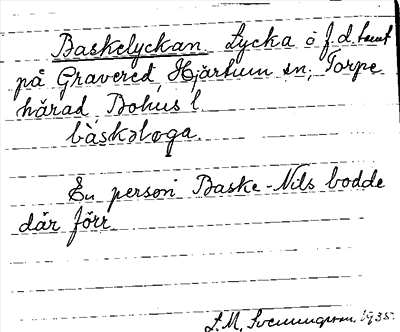 Baskelyckan. Lycka o f.d. tomt
på Gravered, Hjärtum sn, Torpe
härad, Bohus l.
båskəlɷga.
En person Baske-Nils bodde
där förr
L.M. Svenungsson. 1935.